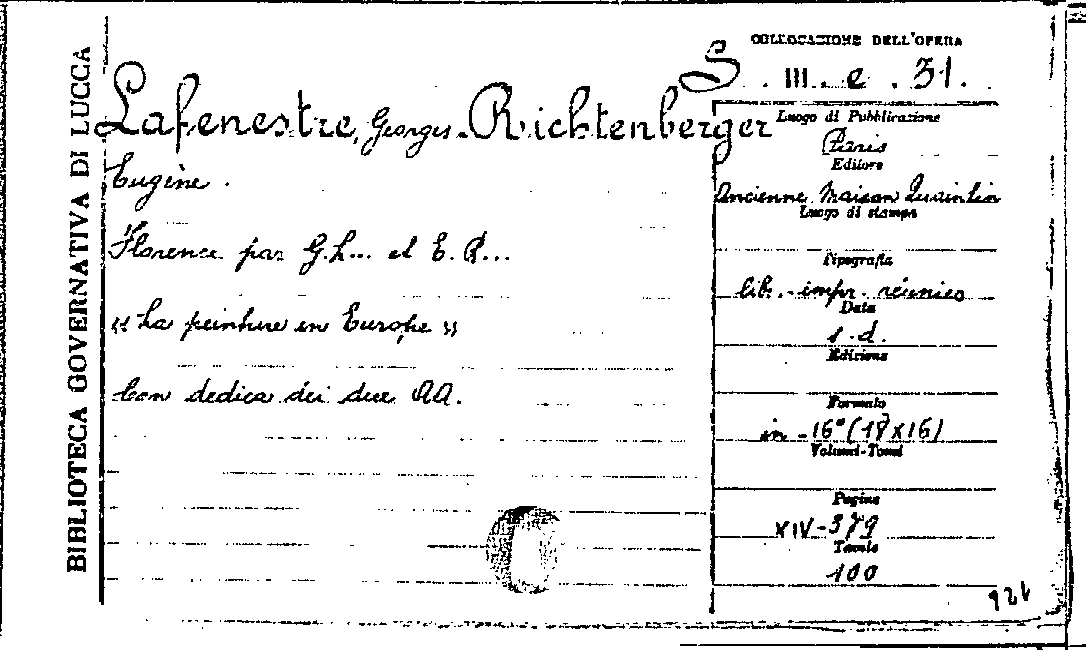 BIBLIOTECA GOVERNATIVA DI LUCCA
Lafenestre, Georges - Richtenberger
Eugène.
Florence par G.L... et E.R...
«La peinture en Europe»
Con dedica dei due AA.
COLLOCAZIONE DELL'OPERA
S. III. e. 31.
Luogo di Pubblicazione
Paris
Editore
Ancienne Maison Quantin
Luogo di stampa
Tipografia
lib. - impr. réunies
Data
s.d.
Edizione
Formato
in-16° (18x16)
Volumi-Tomi
Pagine
XIV-379
Tavole
100